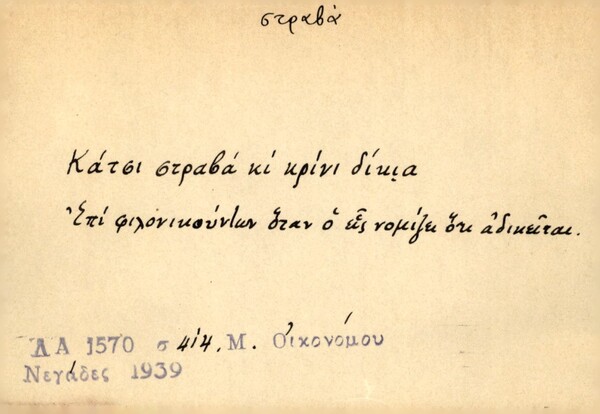 στραβά
Κάτσι στραβά κί κρίνι δίκια
Ἐπί φιλονικούντων ὅταν ὁ εἷς νομίζει ὅτι ἀδικεῖται.
ΛΑ 1570 σ 414, Μ. Οἰκονόμου
Νεγάδες 1939